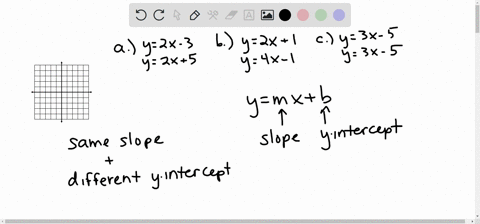 a.) y=2x-3 b.) y=2x+1 c.) y=3x-5
y=2x+5 y=4x-1 y=3x-5
y=mx+b
slope y-intercept
same slope
+
different y-intercept